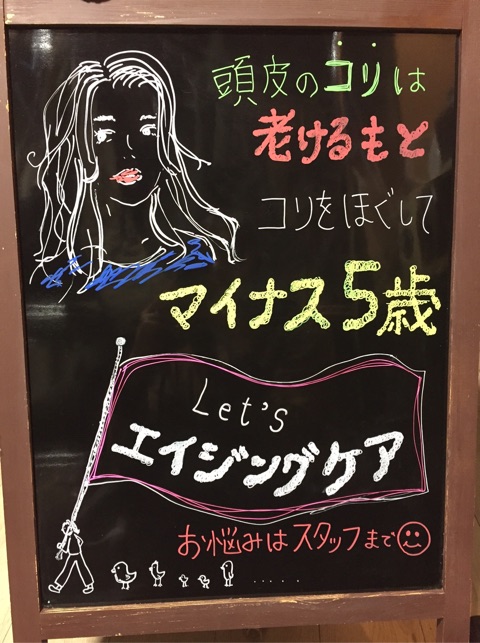 頭皮のコリは
老けるもと
コリをほぐして
マイナス5歳
Let's
エイジングケア
お悩みはスタッフまで